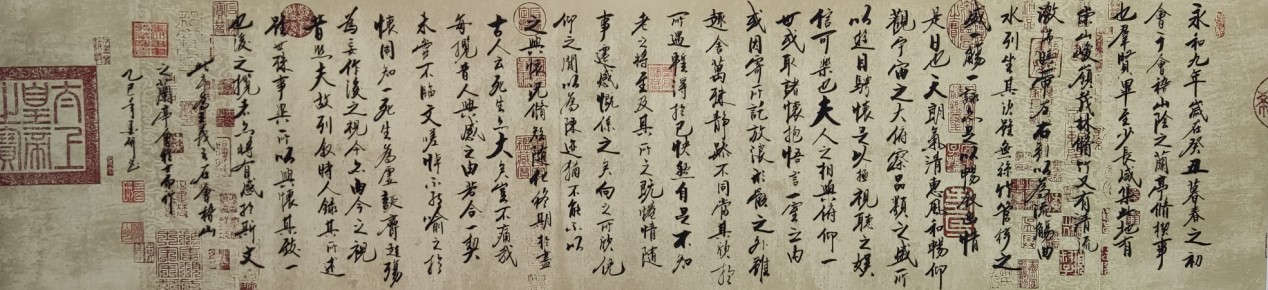 永和九年歲在癸丑暮春之初
會于會稽山陰之蘭亭脩稧事
也羣賢畢至少長咸集此地有
崇山峻領茂林脩竹又有清流
激湍暎帶左右引以為流觴曲
水列坐其次雖無絲竹管弦之
盛一觴一詠亦足以暢敘幽情
是日也天朗氣清惠風和暢仰
觀宇宙之大俯察品類之盛所
以遊目騁懷足以極視聽之娛
信可樂也夫人之相與俯仰一
世或取諸懷抱悟言一室之內
或因寄所託放浪形骸之外雖
趣舍萬殊靜躁不同當其欣於
所遇蹔得於己快然自足不知
老之將至及其所之既惓情隨
事遷感慨係之矣向之所欣俛
仰之間以為陳迹猶不能不以
之興懷況脩短隨化終期於盡
古人云死生亦大矣豈不痛哉
每攬昔人興感之由若合一契
未嘗不臨文嗟悼不能喻之於
懷固知一死生為虛誕齊彭殤
為妄作後之視今亦由今之視
昔悲夫故列敘時人錄其所述
雖世殊事異所以興懷其致一
也後之攬者亦將有感於斯文
此序為王羲之在會稽山
之蘭亭會而作
乙巳年
太上皇帝之寶